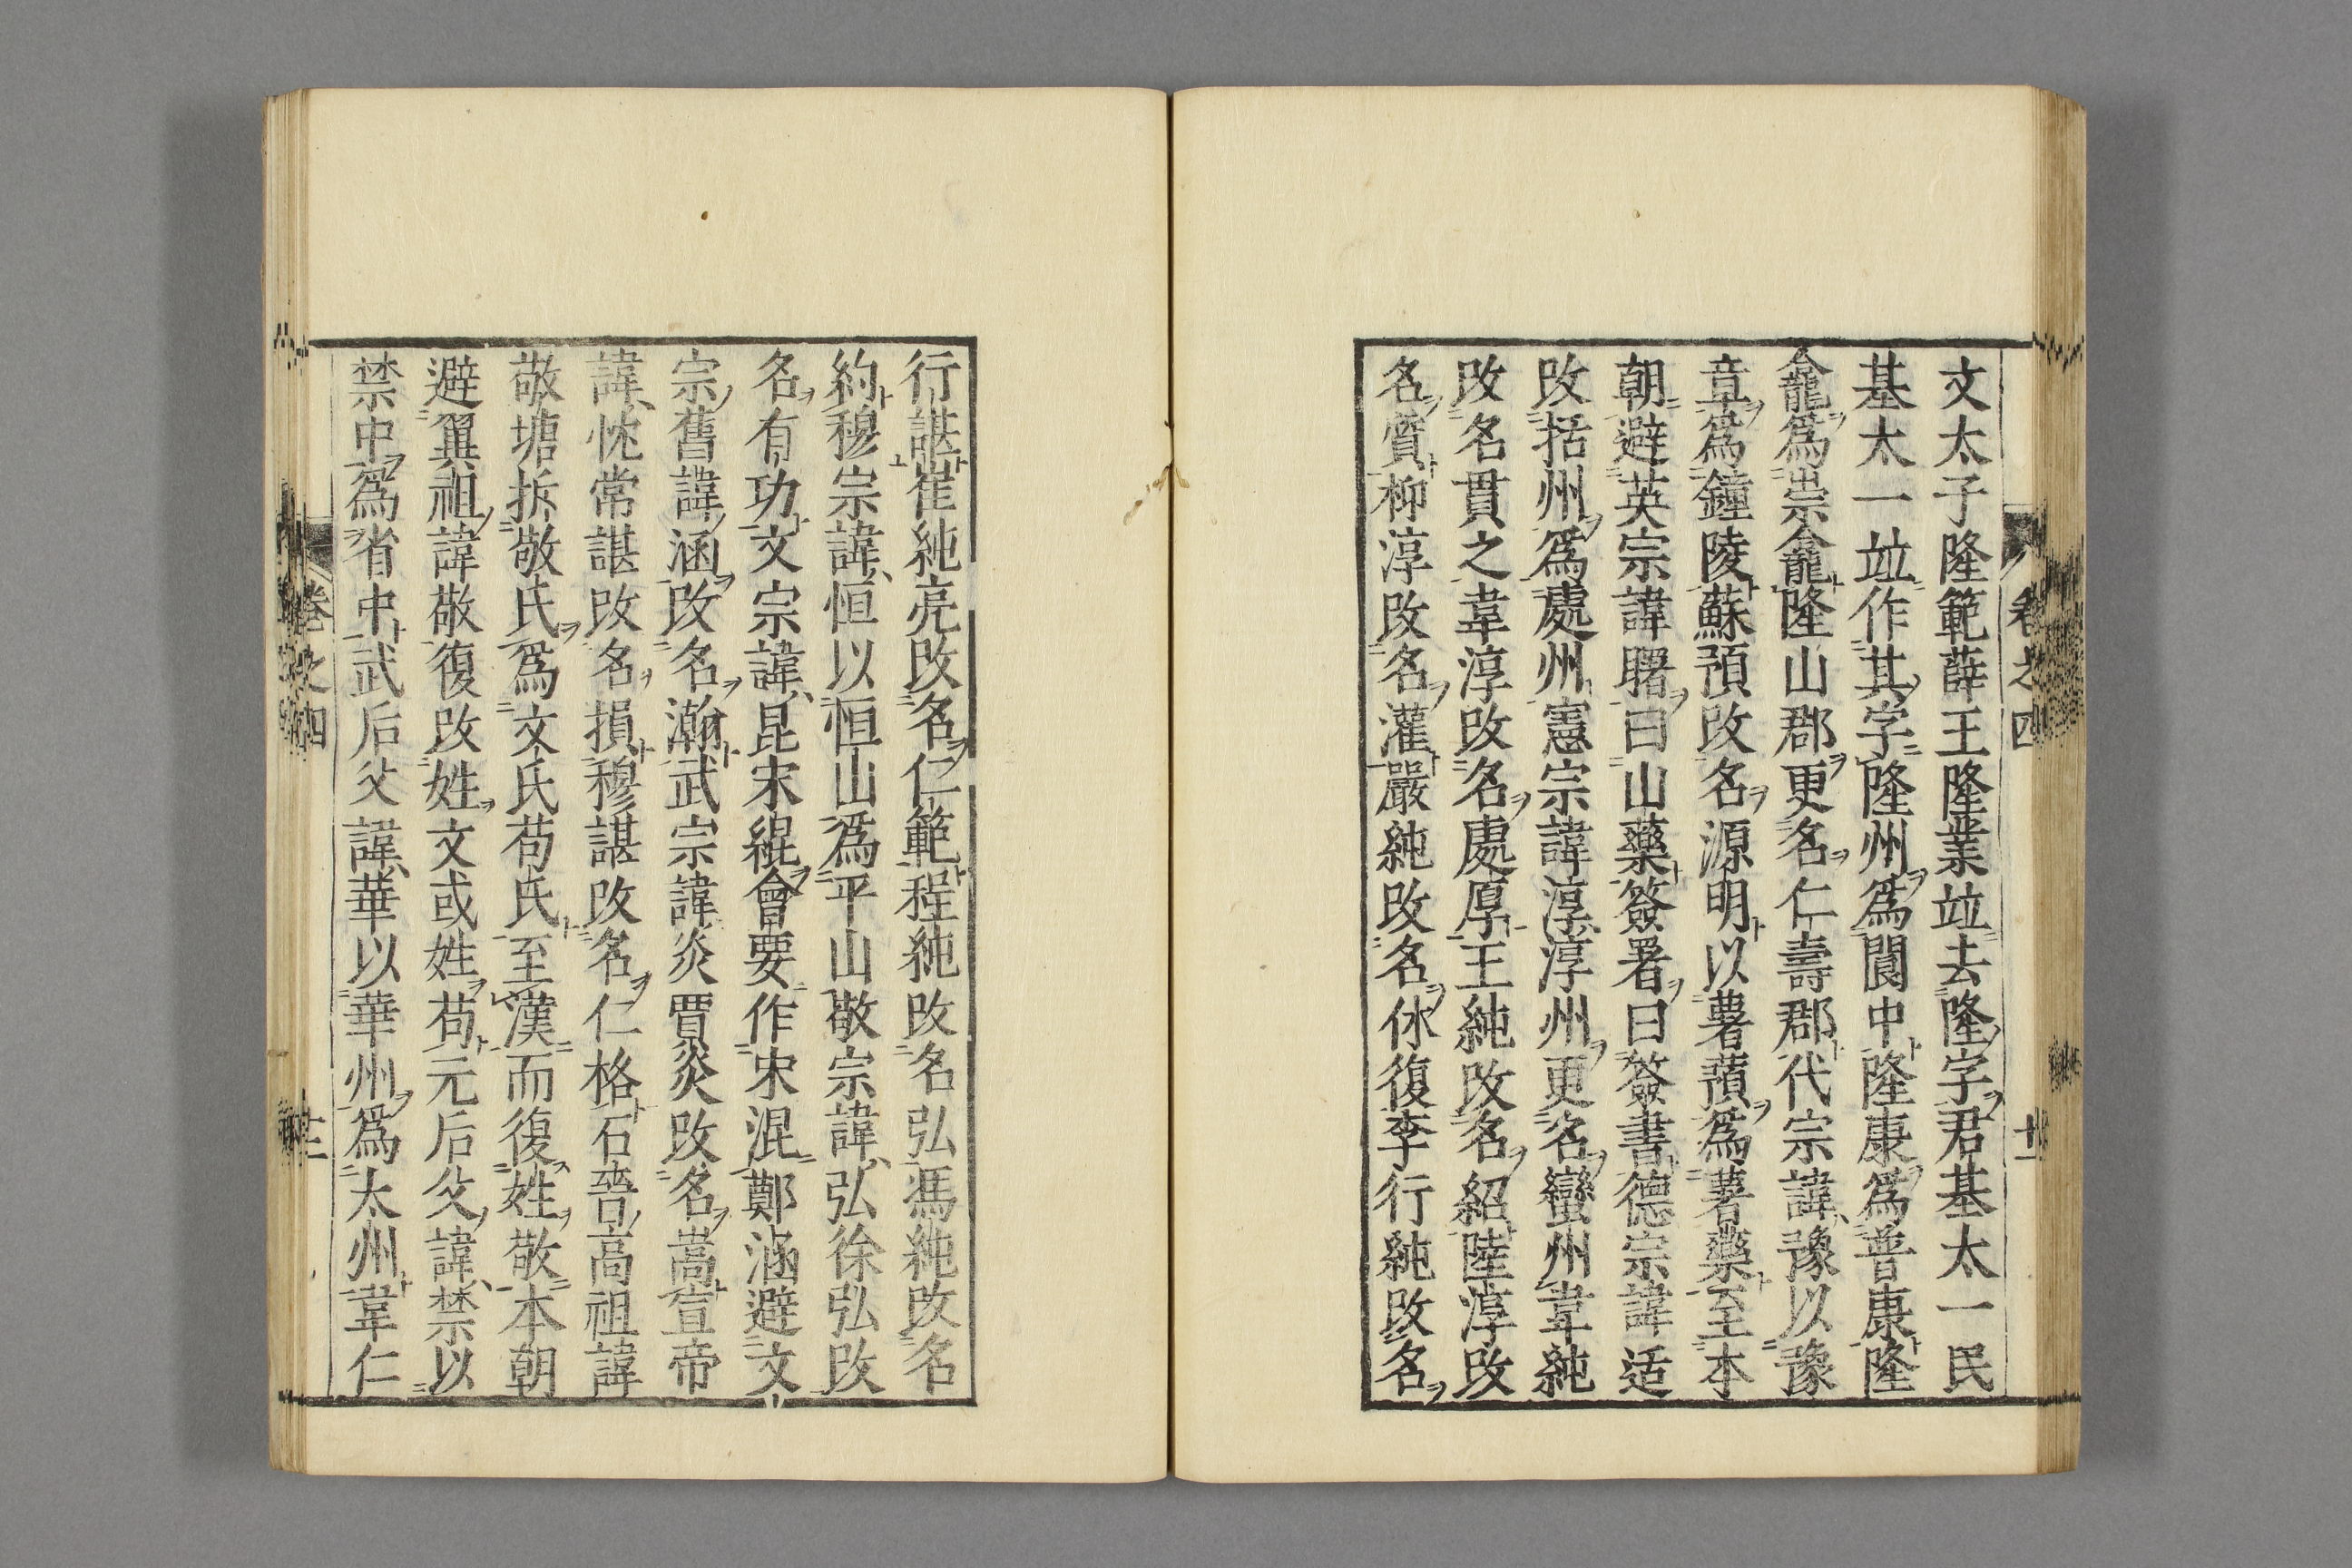 卷之四
十一
文太子隆範薛王隆業竝去隆字君基太一民
基太一竝作其字隆州爲閬中隆康爲普康隆
龕爲崇龕隆山郡更名仁壽郡代宗諱豫以豫
章爲鐘陵蘇預改名源明以薯蕷爲薯藥至本
朝避英宗諱曙曰山藥簽署曰簽書德宗諱适
改括州爲處州憲宗諱淳淳州更名蠻州韋純
改名貫之韋淳改名處厚王純改名紹陸淳改
名質柳淳改名灌嚴純改名休復李行純改名
行諶崔純亮改名仁範程純改名弘馮純改名
約穆宗諱恒以恒山爲平山敬宗諱弘徐弘改
名有功文宗諱昆宋緄會要作宋混鄭涵避文
宗舊諱涵改名瀚武宗諱炎賈炎改名嵩宣帝
諱忱常諶改名損穆諶改名仁格石晉高祖諱
敬塘拆敬氏爲文氏苟氏至漢而復姓敬本朝
避翼祖諱敬復改姓文或姓苟元后父諱禁以
禁中爲省中武后父諱華以華州爲太州韋仁
卷之四
十二